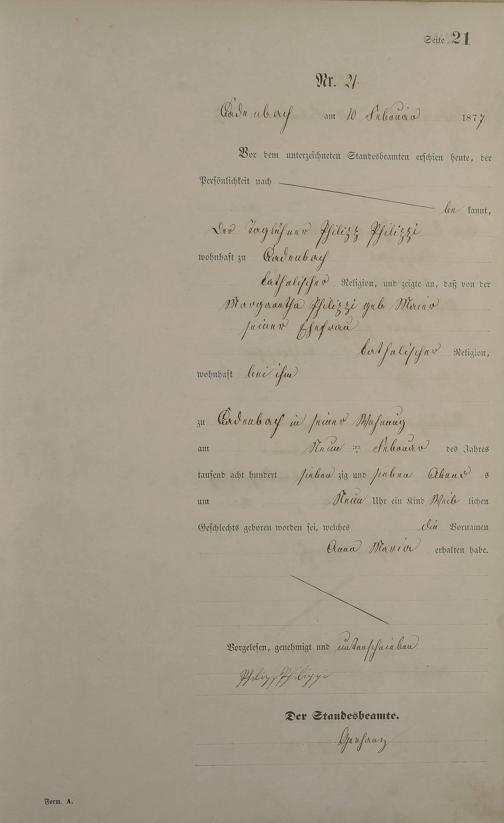 Seite 21
Nr. 21.
Cadenbach am 10 Februar 1877
Vor dem unterzeichneten Standesbeamten erschien heute, der
Persönlichkeit nach
be kannt,
der Taglöhner Philipp Philippi
wohnhaft zu Cadenbach
katholischer Religion, und zeigte an, daß von der
Margaretha Philippi geb Maier
seiner Ehefrau
katholischer Religion,
wohnhaft bei ihm
zu Cadenbach in seiner Wohnung
am Neun ten Februar des Jahres
tausend acht hundert sieben zig und sieben Abend s
um Neun Uhr ein Kind Weib lichen
Geschlechts geboren worden sei, welches die Vornamen
Anna Maria erhalten habe.
Vorgelesen, genehmigt und unterschrieben
Philipp Philippi
Der Standesbeamte.
Form. A.